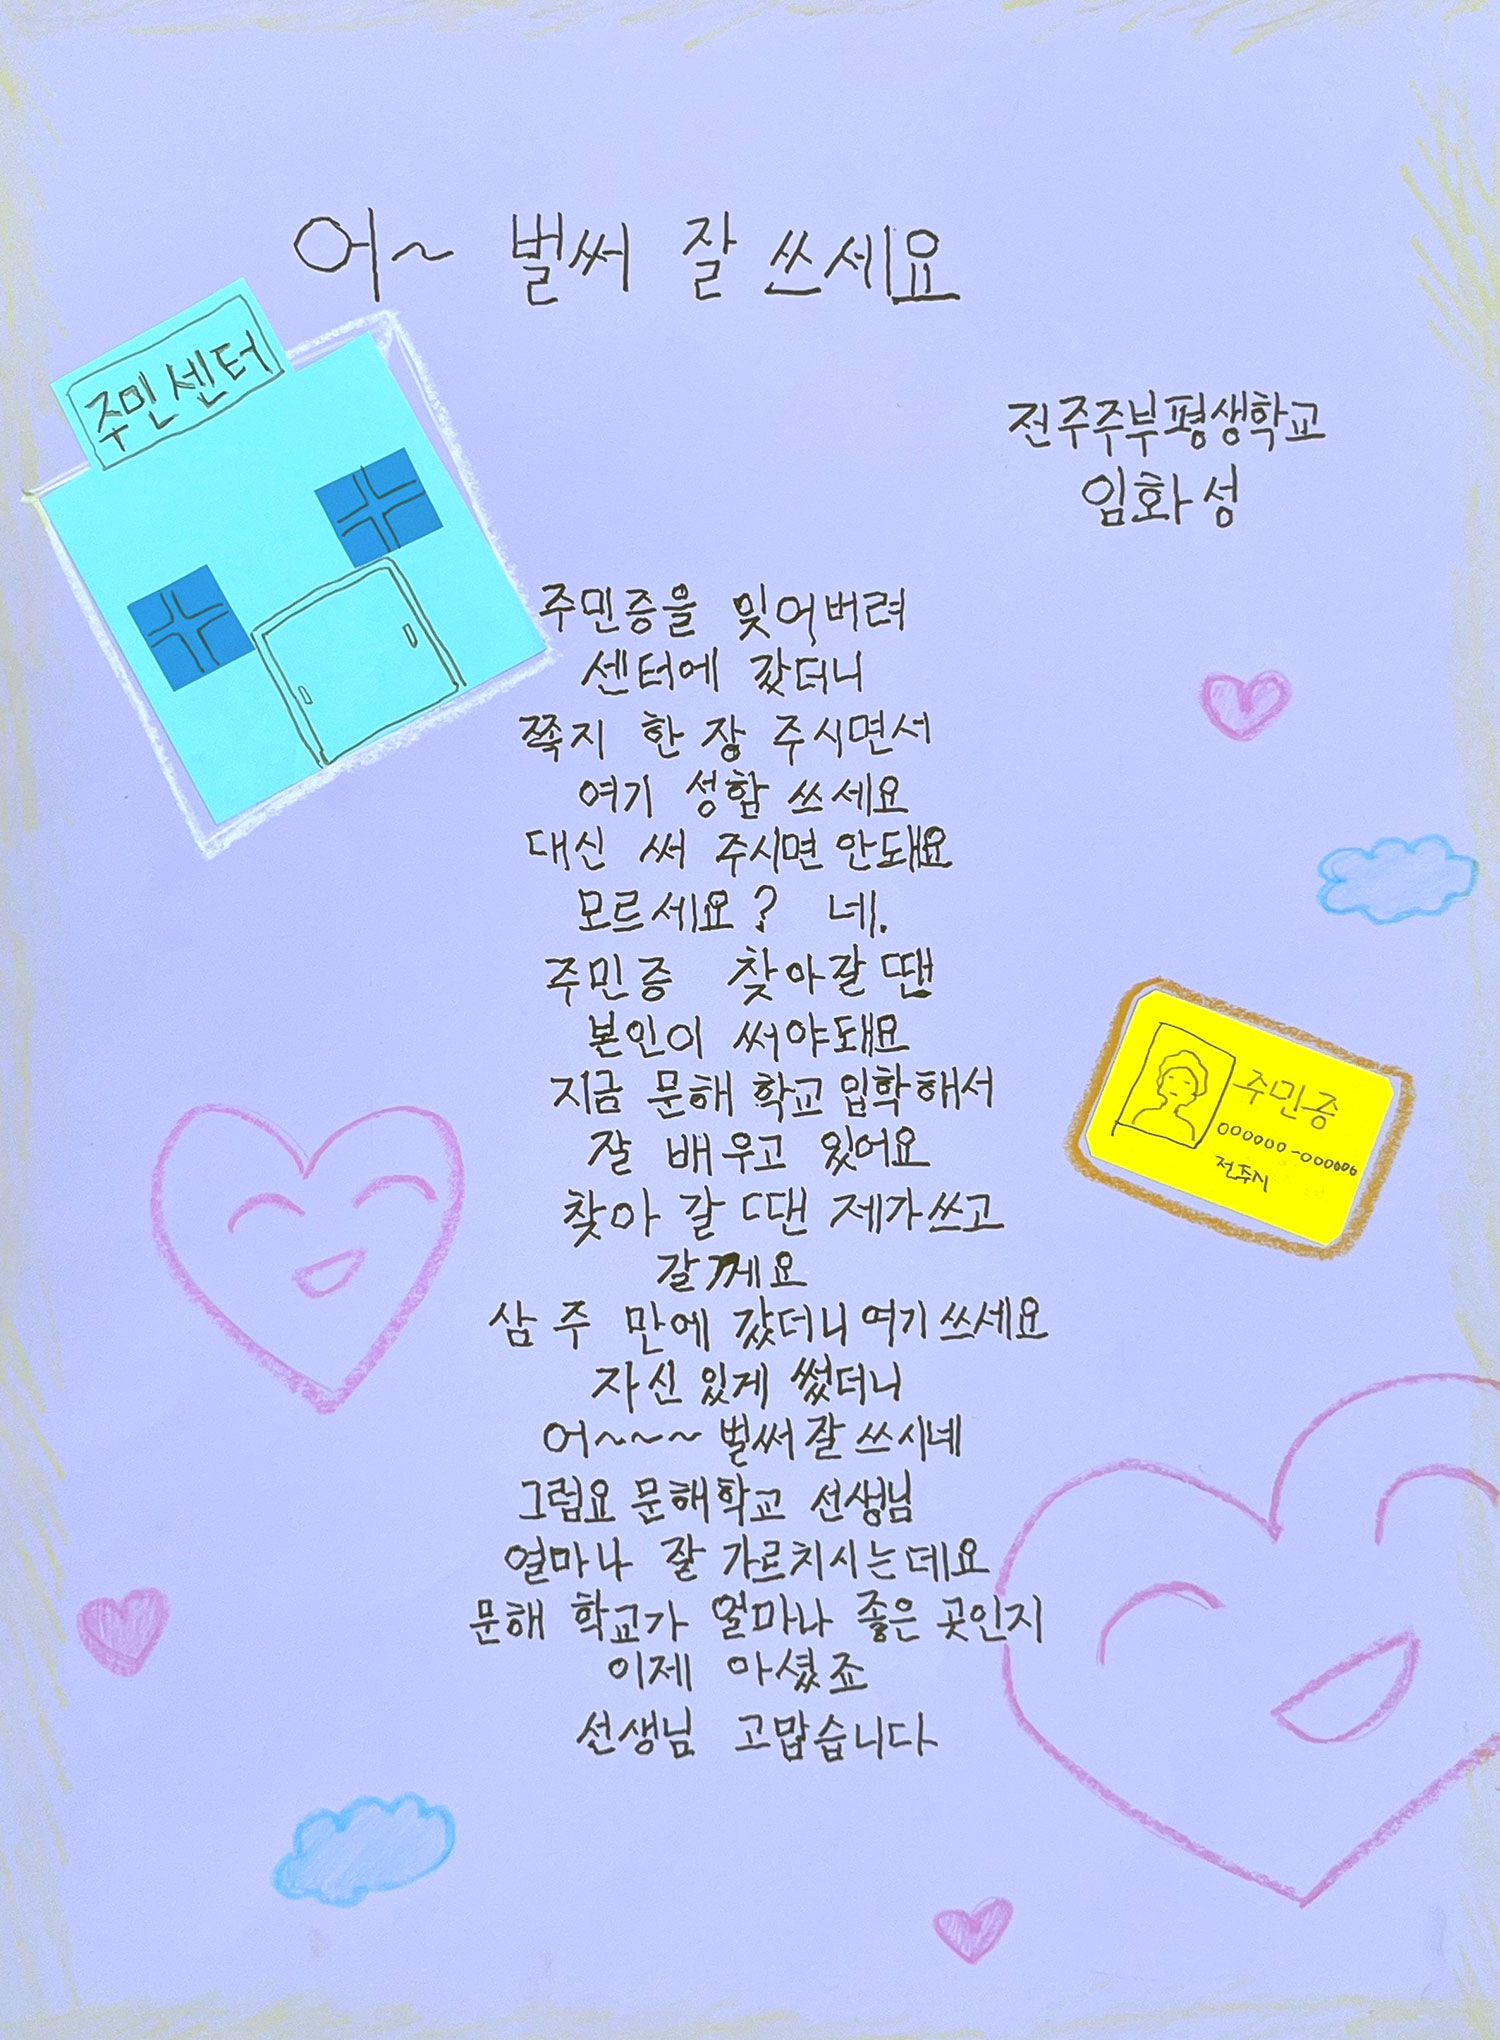 어~ 벌써 잘 쓰세요
주민센터
전주주부평생학교
임화성
주민증을 잊어버려
센터에 갔더니
쪽지 한 장 주시면서
여기 성함 쓰세요
대신 써 주시면 안돼요
모르세요? 네.
주민증 찾아갈 땐
본인이 써야돼요
지금 문해 학교 입학해서
잘 배우고 있어요
찾아 갈 땐 제가쓰고
갈께요
삼 주 만에 갔더니 여기 쓰세요
자신 있게 썼더니
어~~~~ 벌써 잘 쓰시네
그럼요 문해학교 선생님
얼마나 잘 가르치시는데요
문해 학교가 얼마나 좋은 곳인지
이제 아셨죠
선생님 고맙습니다
주민증
000000-000000
전주시